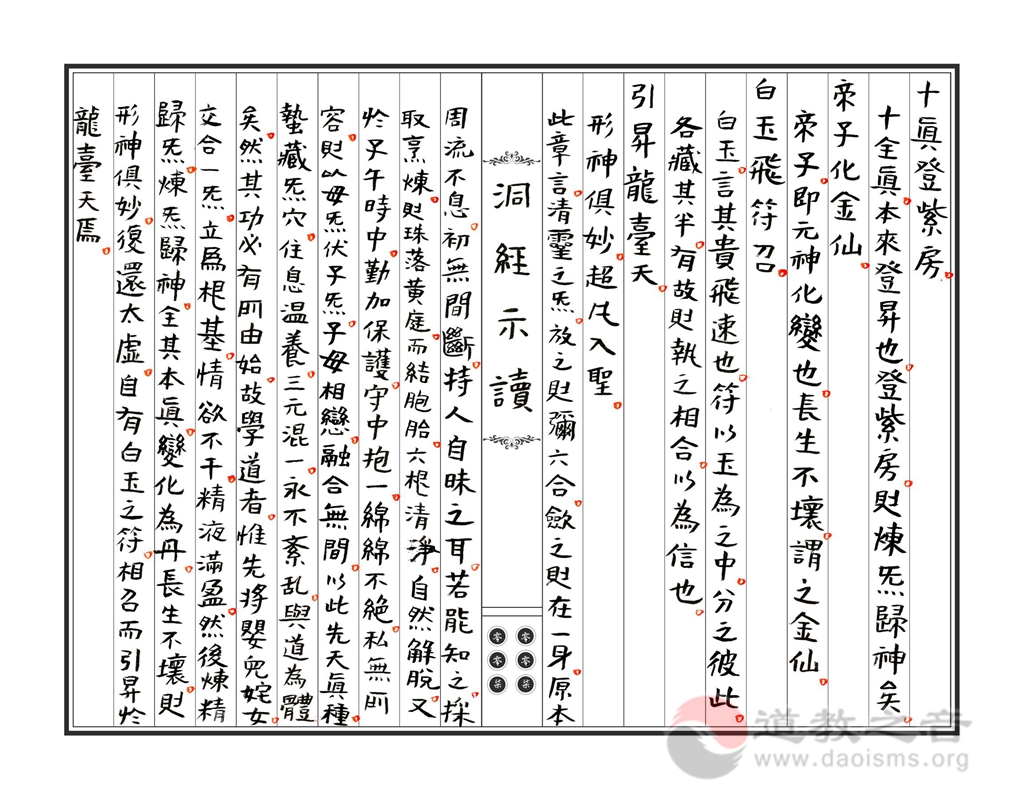 十眞登紫房。
十全眞。本來登昇也。登紫房。則煉炁歸神矣。
帝子化金仙。
帝子。即元神化變也。長生不壞。謂之金仙。
白玉飛符召。
白玉。言其貴。飛速也。符以玉為之。中分之。彼此。
各藏其半。有故則執之相合。以為信也。
引昇龍臺天。
形神俱妙。超凡入聖。
此章言。清靈之炁。放之則彌六合。斂之則在一身。原本
洞經示讀
零零零零柒柒
周流不息。初無間斷。持人自昧之耳。若能知之。採
取烹煉。則珠落黄庭。而結胞胎。六根清淨。自然解脫。又
於子午時中。勤加保護。守中抱一。綿綿不絶。私無所
容。則以母炁伏子炁。子母相戀。融合無間。以此先天眞種。
蟄藏炁穴。住息温養。三元混一。永不紊乱。與道為體
矣。然其功必有所由始。故學道者。惟先將嬰兒姹女。
交合一炁。立爲根基。情欲不干。精液滿盈。然後煉精
歸炁。煉炁歸神。全其本眞。變化為丹。長生不壞。則
形神俱妙。復還太虛。自有白玉之符。相召而引昇於
龍臺天焉。
道教之音
www.daoisms.org